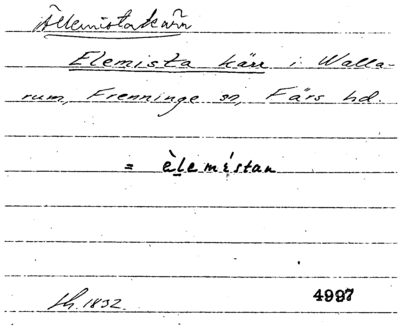 Ällemistakärr
Elemista kärr i Walla-
rum, Frenninge sn, Färs hd.
= èlemístan
Lh. 1832.
4997